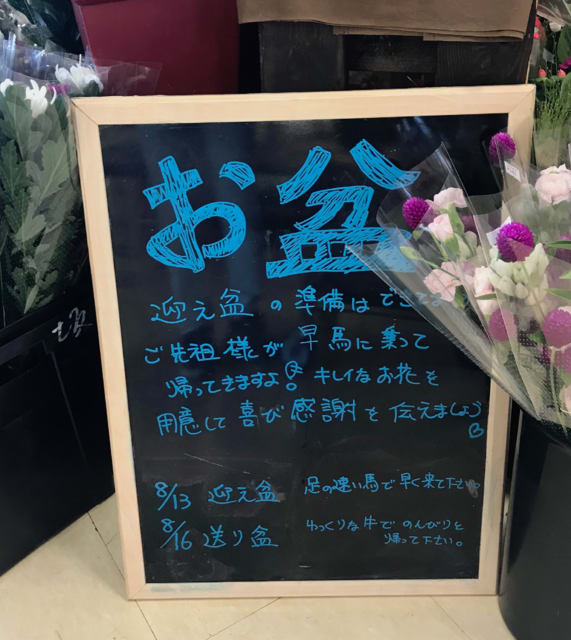 お盆
迎え盆の準備はでき
ご先祖様が早馬に乗って
帰ってきますよ!キレイなお花を
用意して喜び感謝を伝えましょう
8/13 迎え盆 足の速い馬で早く来て下さい。
8/16 送り盆 ゆっくりな牛でのんびりと
帰って下さい。